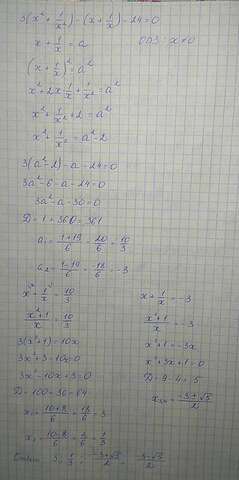 3(x² + 1/x²) - (x + 1/x) - 24 = 0
x + 1/x = a ОДЗ: x ≠ 0
(x + 1/x)² = a²
x² + 2x · 1/x + 1/x² = a²
x² + 1/x² + 2 = a²
x² + 1/x² = a² - 2
3(a² - 2) - a - 24 = 0
3a² - 6 - a - 24 = 0
3a² - a - 30 = 0
D = 1 + 360 = 361
a₁ = (1+19)/6 = 20/6 = 10/3
a₂ = (1-19)/6 = -18/6 = -3
x + 1/x = 10/3
(x²+1)/x = 10/3
3(x²+1) = 10x
3x² + 3 - 10x = 0
3x² - 10x + 3 = 0
D = 100 - 36 = 64
x₁ = (10+8)/6 = 18/6 = 3
x₂ = (10-8)/6 = 2/6 = 1/3
x + 1/x = -3
(x²+1)/x = -3
x² + 1 = -3x
x² + 3x + 1 = 0
D = 9 - 4 = 5
x₃,₄ = (-3 ± √5)/2
Ответ: 3; 1/3; (-3+√5)/2; (-3-√5)/2